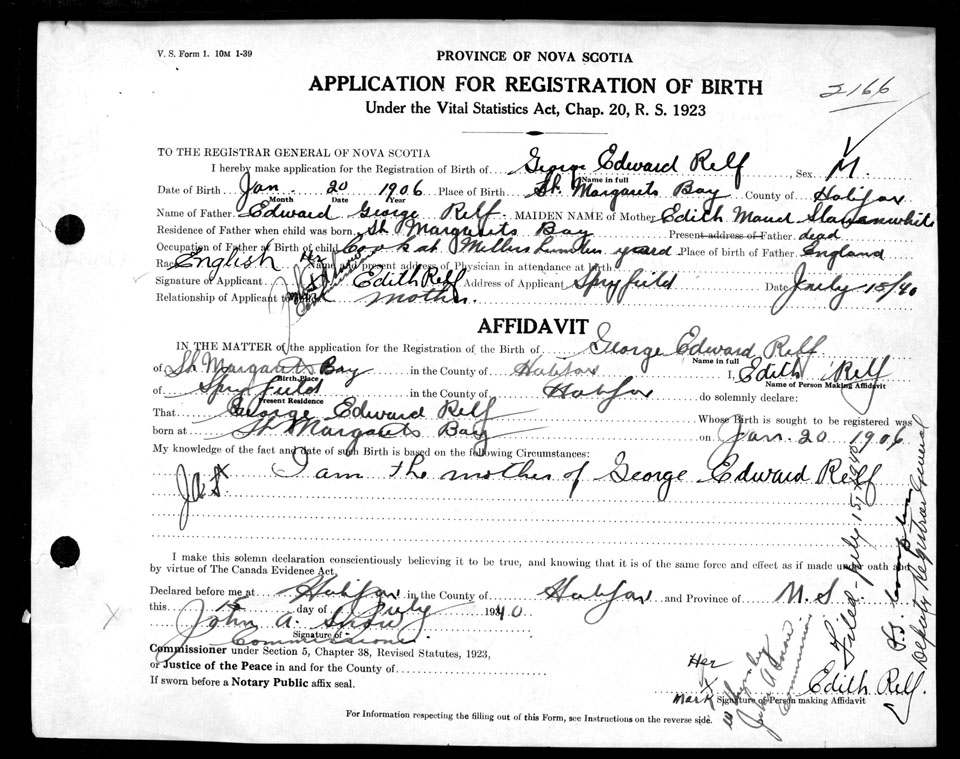 V. S. Form 1. 10M 1-39
PROVINCE OF NOVA SCOTIA
APPLICATION FOR REGISTRATION OF BIRTH
2166
Under the Vital Statistics Act, Chap. 20, R. S. 1923
TO THE REGISTRAR GENERAL OF NOVA SCOTIA
I hereby make application for the Registration of Birth of George Edward Relf Sex M.
Name in full
Date of Birth Jan. 20 1906 Place of Birth St. Margarets Bay County of Halifax
Month Date Year
Name of Father Edward George Relf MAIDEN NAME of Mother Edith Maud
Residence of Father when child was born St Margarets Bay Present address of Father dead
Occupation of Father at Birth of child Cook at Millers Lumber yeard Place of birth of Father England
Race English Name and present address of Physician in attendance at birth
Signature of Applicant Her Edith Relf Address of Applicant Spryfield Date July 15/40
Relationship of Applicant to Mother.
AFFIDAVIT
IN THE MATTER of the application for the Registration of the Birth of George Edward Relf
Name in full
of St Margarets Bay in the County of Halifax I, Edith Relf
Birth Place Name of Person Making Affidavit
of Spryfield in the County of Halifax do solemnly declare:
Present Residence
That George Edward Relf Whose Birth is sought to be registered was
born at St Margarets Bay on Jan. 20 1906
My knowledge of the fact and date of such Birth is based on the following Circumstances:
I am the mother of George Edward Relf
J.A.S. X
I make this solemn declaration conscientiously believing it to be true, and knowing that it is of the same force and effect as if made under oath and
by virtue of The Canada Evidence Act.
Declared before me at Halifax in the County of Halifax and Province of N. S
this 15 day of July 1940
John A. Snow
Signature of
Commissioner
Commissioner under Section 5, Chapter 38, Revised Statutes, 1923,
or Justice of the Peace in and for the County of
If sworn before a Notary Public affix seal.
Her
X
mark
Edith Relf.
Signature of Person making Affidavit
For Information respecting the filling out of this Form, see Instructions on the reverse side.
Witness by
John A Snow
Commissioner
Filed - July 15, 1940
Deputy Registrar General